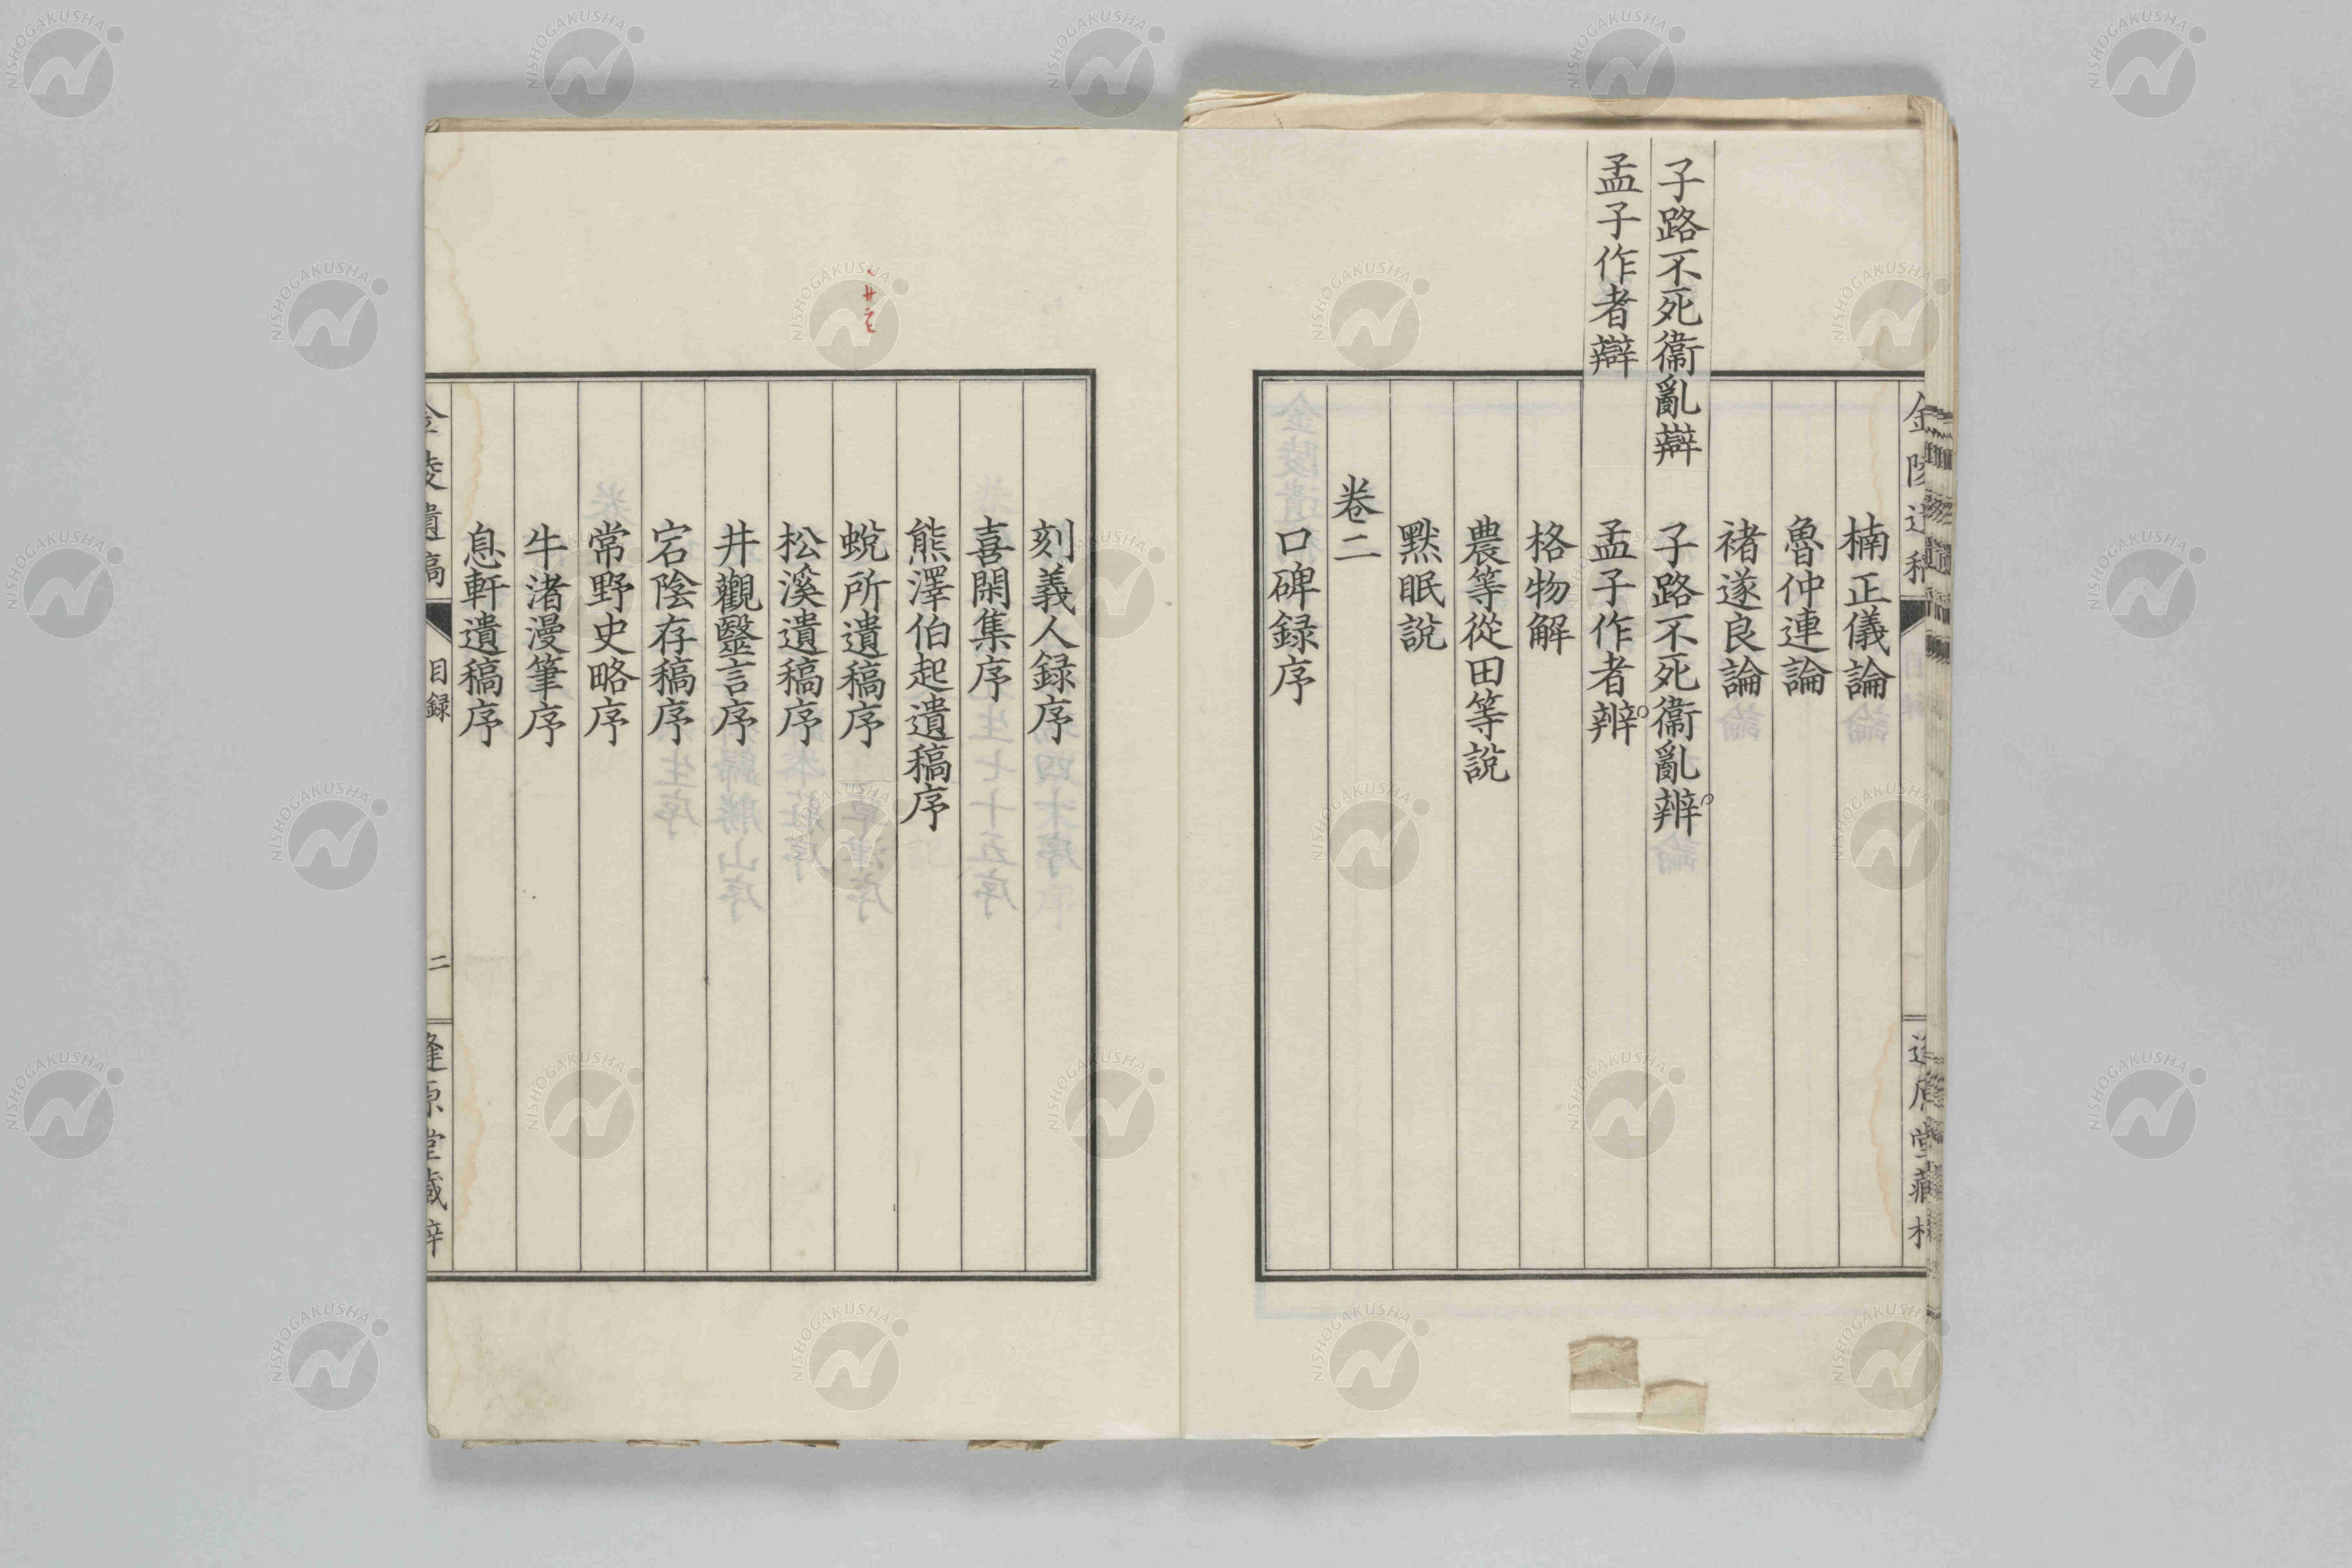 楠正儀論
魯仲連論
褚遂良論
子路不死衞亂辯
子路不死衞亂辨
孟子作者辯
孟子作者辨
格物解
農等從田等説
默眠説
卷二
口碑録序
刻義人録序
喜閑集序
熊澤伯起遺稿序
蛻所遺稿序
松溪遺稿序
井觀毉言序
宕陰存稿序
常野史略序
牛渚漫筆序
息軒遺稿序
金陵遺稿
目録
二
逢原堂藏梓
NISHOGAKUSHA